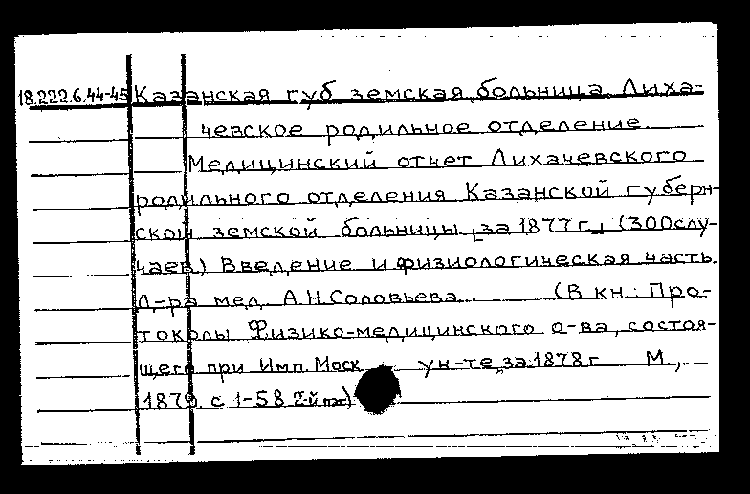 18.222.6.44-45 Казанская губ земская больница. Лиха-
чевское родильное отделение.
Медицинский отчет Лихачевского
родильного отделения Казанской губерн-
ской земской больницы [за 1877 г.] (300 слу-
чаев.) Введение и физиологическая часть.
Д-ра мед. А.Н. Соловьева. (В кн.: Про-
токолы Физико-медицинского о-ва, состоя-
щего при Имп. Моск. ун-те, за 1878 г М.,
1879. с 1-58 2-й паг)